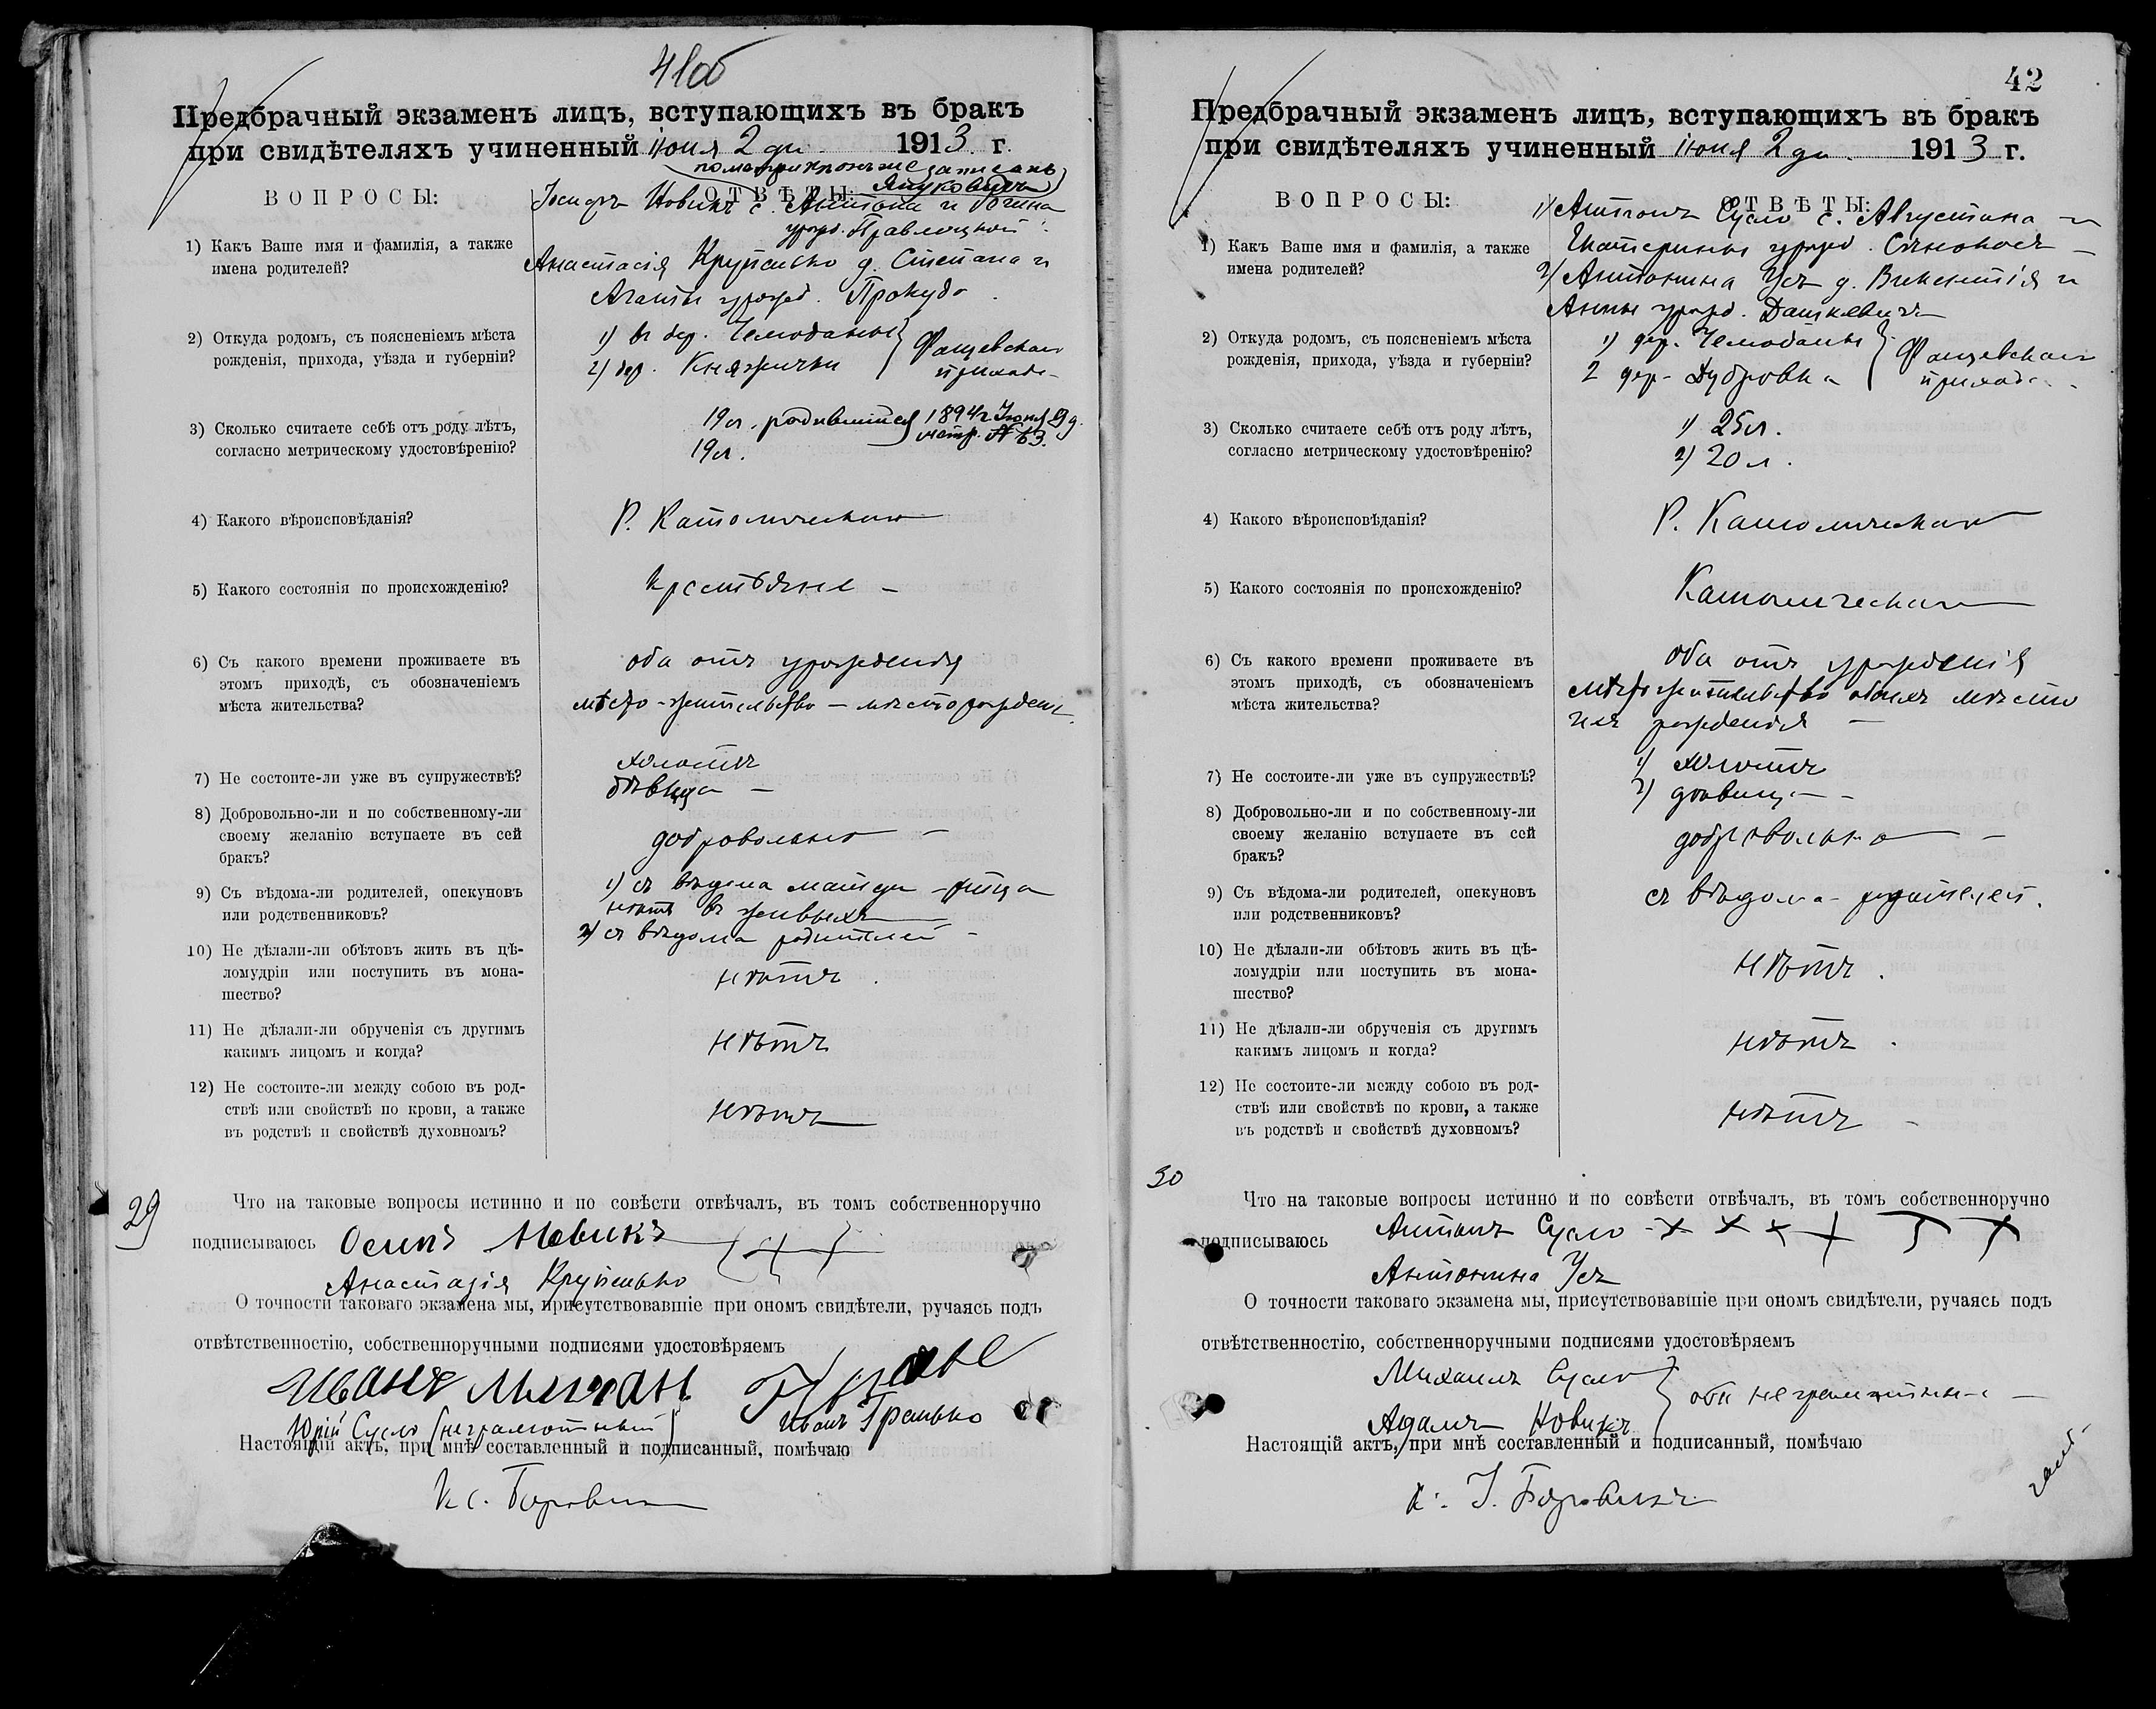 41об
Предбрачный экзаменъ лицъ, вступающихъ въ бракъ
при свидѣтеляхъ учиненный іюня 2 дн. 1913 г.
записанъ
Януковичъ
ВОПРОСЫ:
ОТВѢТЫ:
1) Какъ Ваше имя и фамилія, а также
имена родителей?
Іосифъ Новикъ с. Антона и
урожд.
Анастасія Крупенько д. Степана и
Агаты урожд. Прокудо
2) Откуда родомъ, съ поясненіемъ мѣста
рожденія, прихода, уѣзда и губерніи?
1) въ дер. Чемоданы
2) дер. Княжички
Фащевскаго
прихода
3) Сколько считаете себѣ отъ роду лѣтъ,
согласно метрическому удостовѣренію?
19 л. родившійся 1894 г. Іюня 9 д.
метр. № 63.
19 л.
4) Какого вѣроисповѣданія?
Р. Католическаго
5) Какого состоянія по происхожденію?
Крестьяне -
6) Съ какого времени проживаете въ
этомъ приходѣ, съ обозначеніемъ
мѣста жительства?
оба отъ урожденія
мѣсто-жительство - мѣсто рожден.
7) Не состоите-ли уже въ супружествѣ?
холостъ
дѣвица -
8) Добровольно-ли и по собственному-ли
своему желанію вступаете въ сей
бракъ?
добровольно -
9) Съ вѣдома-ли родителей, опекуновъ
или родственниковъ?
1) съ вѣдома матери - отца
нѣтъ въ живыхъ
2) съ вѣдома родителей -
10) Не дѣлали-ли обѣтовъ жить въ цѣ-
ломудріи или поступить въ мона-
шество?
нѣтъ.
11) Не дѣлали-ли обрученія съ другимъ
какимъ лицомъ и когда?
нѣтъ
12) Не состоите-ли между собою въ род-
ствѣ или свойствѣ по крови, а также
въ родствѣ и свойствѣ духовномъ?
нѣтъ
29
Что на таковые вопросы истинно и по совѣсти отвѣчалъ, въ томъ собственноручно
подписываюсь Осипъ Новикъ
Анастазія Крупенько
О точности таковаго экзамена мы, присутствовавшіе при ономъ свидѣтели, ручаясь подъ
отвѣтственностію, собственноручными подписями удостовѣряемъ
Иванъ
Юрій Сусло (неграмотный) Иванъ
Настоящій актъ, при мнѣ составленный и подписанный, помѣчаю
Кс.
42
Предбрачный экзаменъ лицъ, вступающихъ въ бракъ
при свидѣтеляхъ учиненный іюня 2 дн. 1913 г.
ВОПРОСЫ:
ОТВѢТЫ:
1) Какъ Ваше имя и фамилія, а также
имена родителей?
1) Антонъ Сусло с. Августина и
Екатерины урожд.
2) Антонина Усъ д. Викентія и
Анны урожд. Дашкевичъ
2) Откуда родомъ, съ поясненіемъ мѣста
рожденія, прихода, уѣзда и губерніи?
1) дер. Чемоданы
2 дер. Дубровка
Фащевскаго
прихода
3) Сколько считаете себѣ отъ роду лѣтъ,
согласно метрическому удостовѣренію?
1) 25 л.
2) 20 л.
4) Какого вѣроисповѣданія?
Р. Католическаго
5) Какого состоянія по происхожденію?
Католическаго
6) Съ какого времени проживаете въ
этомъ приходѣ, съ обозначеніемъ
мѣста жительства?
оба отъ урожденія
мѣстожительство обоихъ мѣсто
ихъ рожденія -
7) Не состоите-ли уже въ супружествѣ?
1) холостъ
2) дѣвица -
8) Добровольно-ли и по собственному-ли
своему желанію вступаете въ сей
бракъ?
добровольно -
9) Съ вѣдома-ли родителей, опекуновъ
или родственниковъ?
съ вѣдома родителей.
10) Не дѣлали-ли обѣтовъ жить въ цѣ-
ломудріи или поступить въ мона-
шество?
нѣтъ.
11) Не дѣлали-ли обрученія съ другимъ
какимъ лицомъ и когда?
нѣтъ.
12) Не состоите-ли между собою въ род-
ствѣ или свойствѣ по крови, а также
въ родствѣ и свойствѣ духовномъ?
нѣтъ -
30
Что на таковые вопросы истинно и по совѣсти отвѣчалъ, въ томъ собственноручно
подписываюсь Антонъ Сусло - × × × +
Антонина Усъ
О точности таковаго экзамена мы, присутствовавшіе при ономъ свидѣтели, ручаясь подъ
отвѣтственностію, собственноручными подписями удостовѣряемъ
Михаилъ Сусло
Адамъ Новикъ
оба неграмотные -
Настоящій актъ, при мнѣ составленный и подписанный, помѣчаю